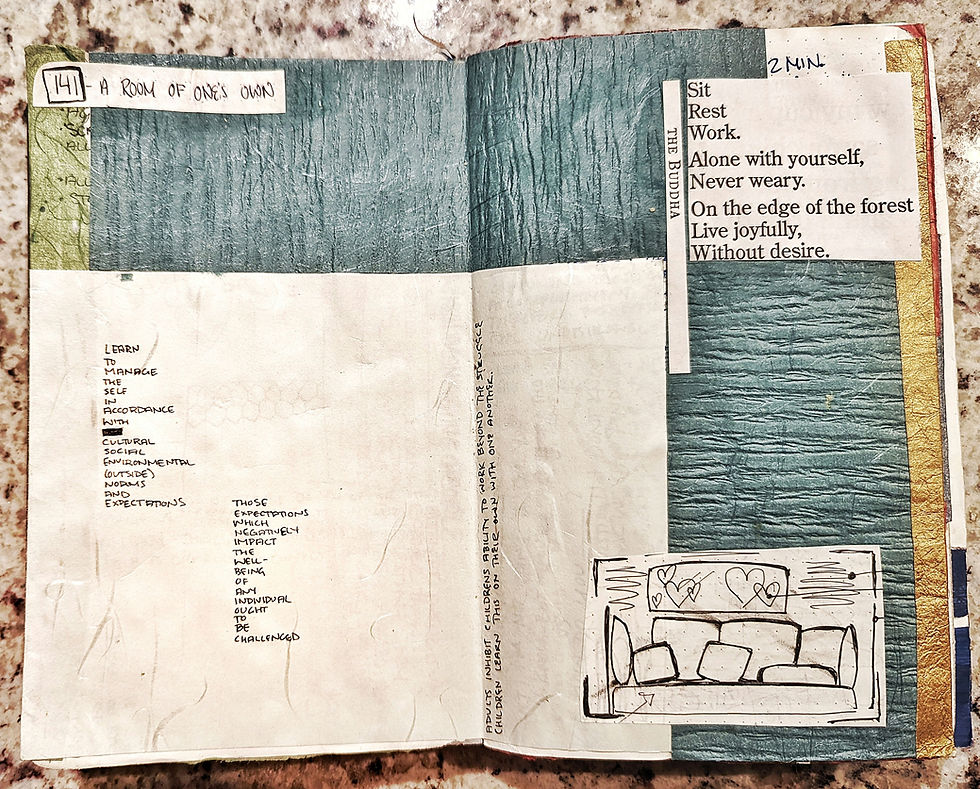 141 - A ROOM OF ONE'S OWN
ALL
LEARN
TO
MANAGE
THE
SELF
IN
ACCORDANCE
WITH
CULTURAL
SOCIAL
ENVIRONMENTAL
(OUTSIDE)
NORMS
AND
EXPECTATIONS
THOSE
EXPECTATIONS
WHICH
NEGATIVELY
IMPACT
THE
WELL-
BEING
OF
ANY
INDIVIDUAL
OUGHT
TO
BE
CHALLENGED
ADULTS INHIBIT CHILDRENS ABILITY TO WORK BEYOND THE STRUGGLE
CHILDREN LEARN THIS ON THEIR OWN WITH ONE ANOTHER.
THE BUDDHA
2 MIN
Sit
Rest
Work.
Alone with yourself,
Never weary.
On the edge of the forest
Live joyfully,
Without desire.